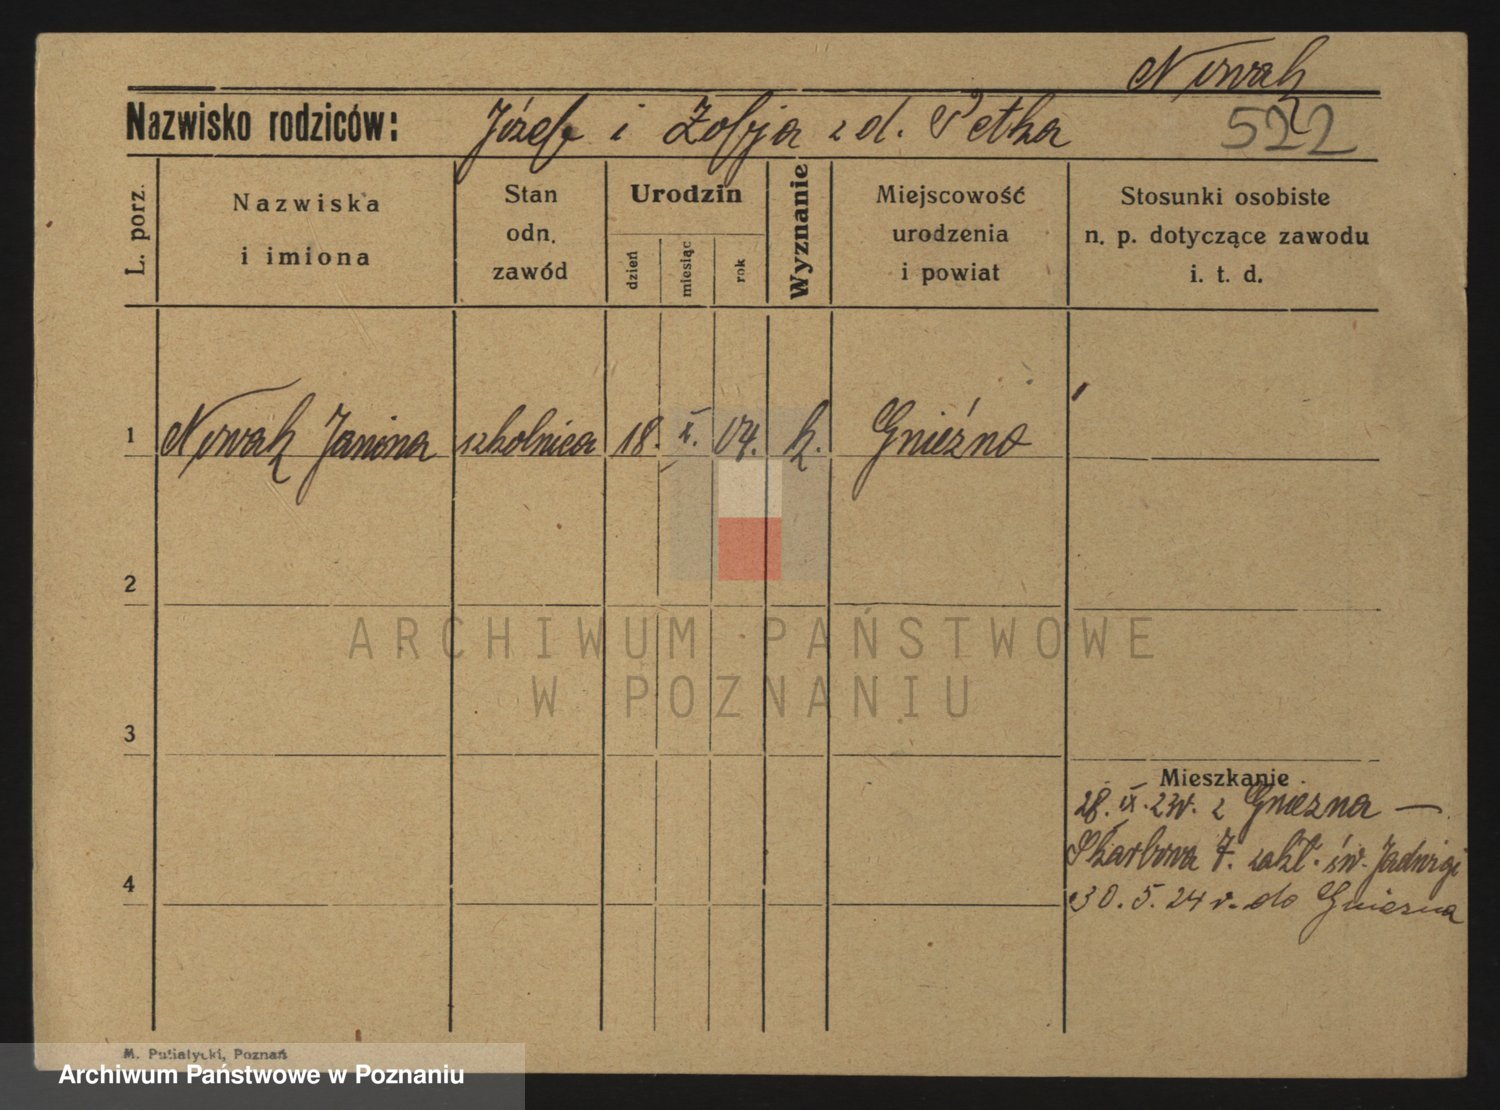 Nowak
Nazwisko rodziców: Józef i Zofja z d. Petka
522
L. porz.
Nazwiska
i imiona
Stan
odn.
zawód
Urodzin
dzień
miesiąc
rok
Wyznanie
Miejscowość
urodzenia
i powiat
Stosunki osobiste
n. p. dotyczące zawodu
i. t. d.
1 Nowak Janina szkolnica 18. X. 04. k. Gniezno
2
ARCHIWUM PAŃSTWOWE
W POZNANIU
3
Mieszkanie
28. IX. 23r. z Gniezna —
Skarbowa 7. zakł. św. Jadwigi
4
30. 5. 24 r. do Gniezna
M. Putiatycki, Poznań
Archiwum Państwowe w Poznaniu